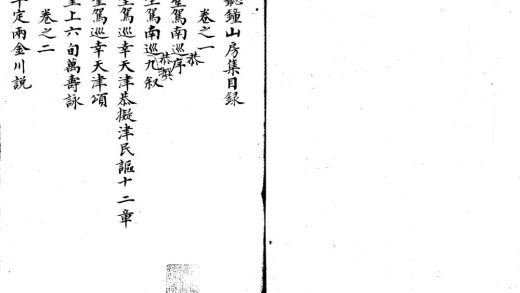 聽鍾山房集目録
卷之一
聖駕南巡序恭
聖駕南巡九叙恭撰
聖駕巡幸天津恭擬津民謳十二章
聖駕巡幸天津頌
皇上六旬萬壽詠
卷之二
平定兩金川説